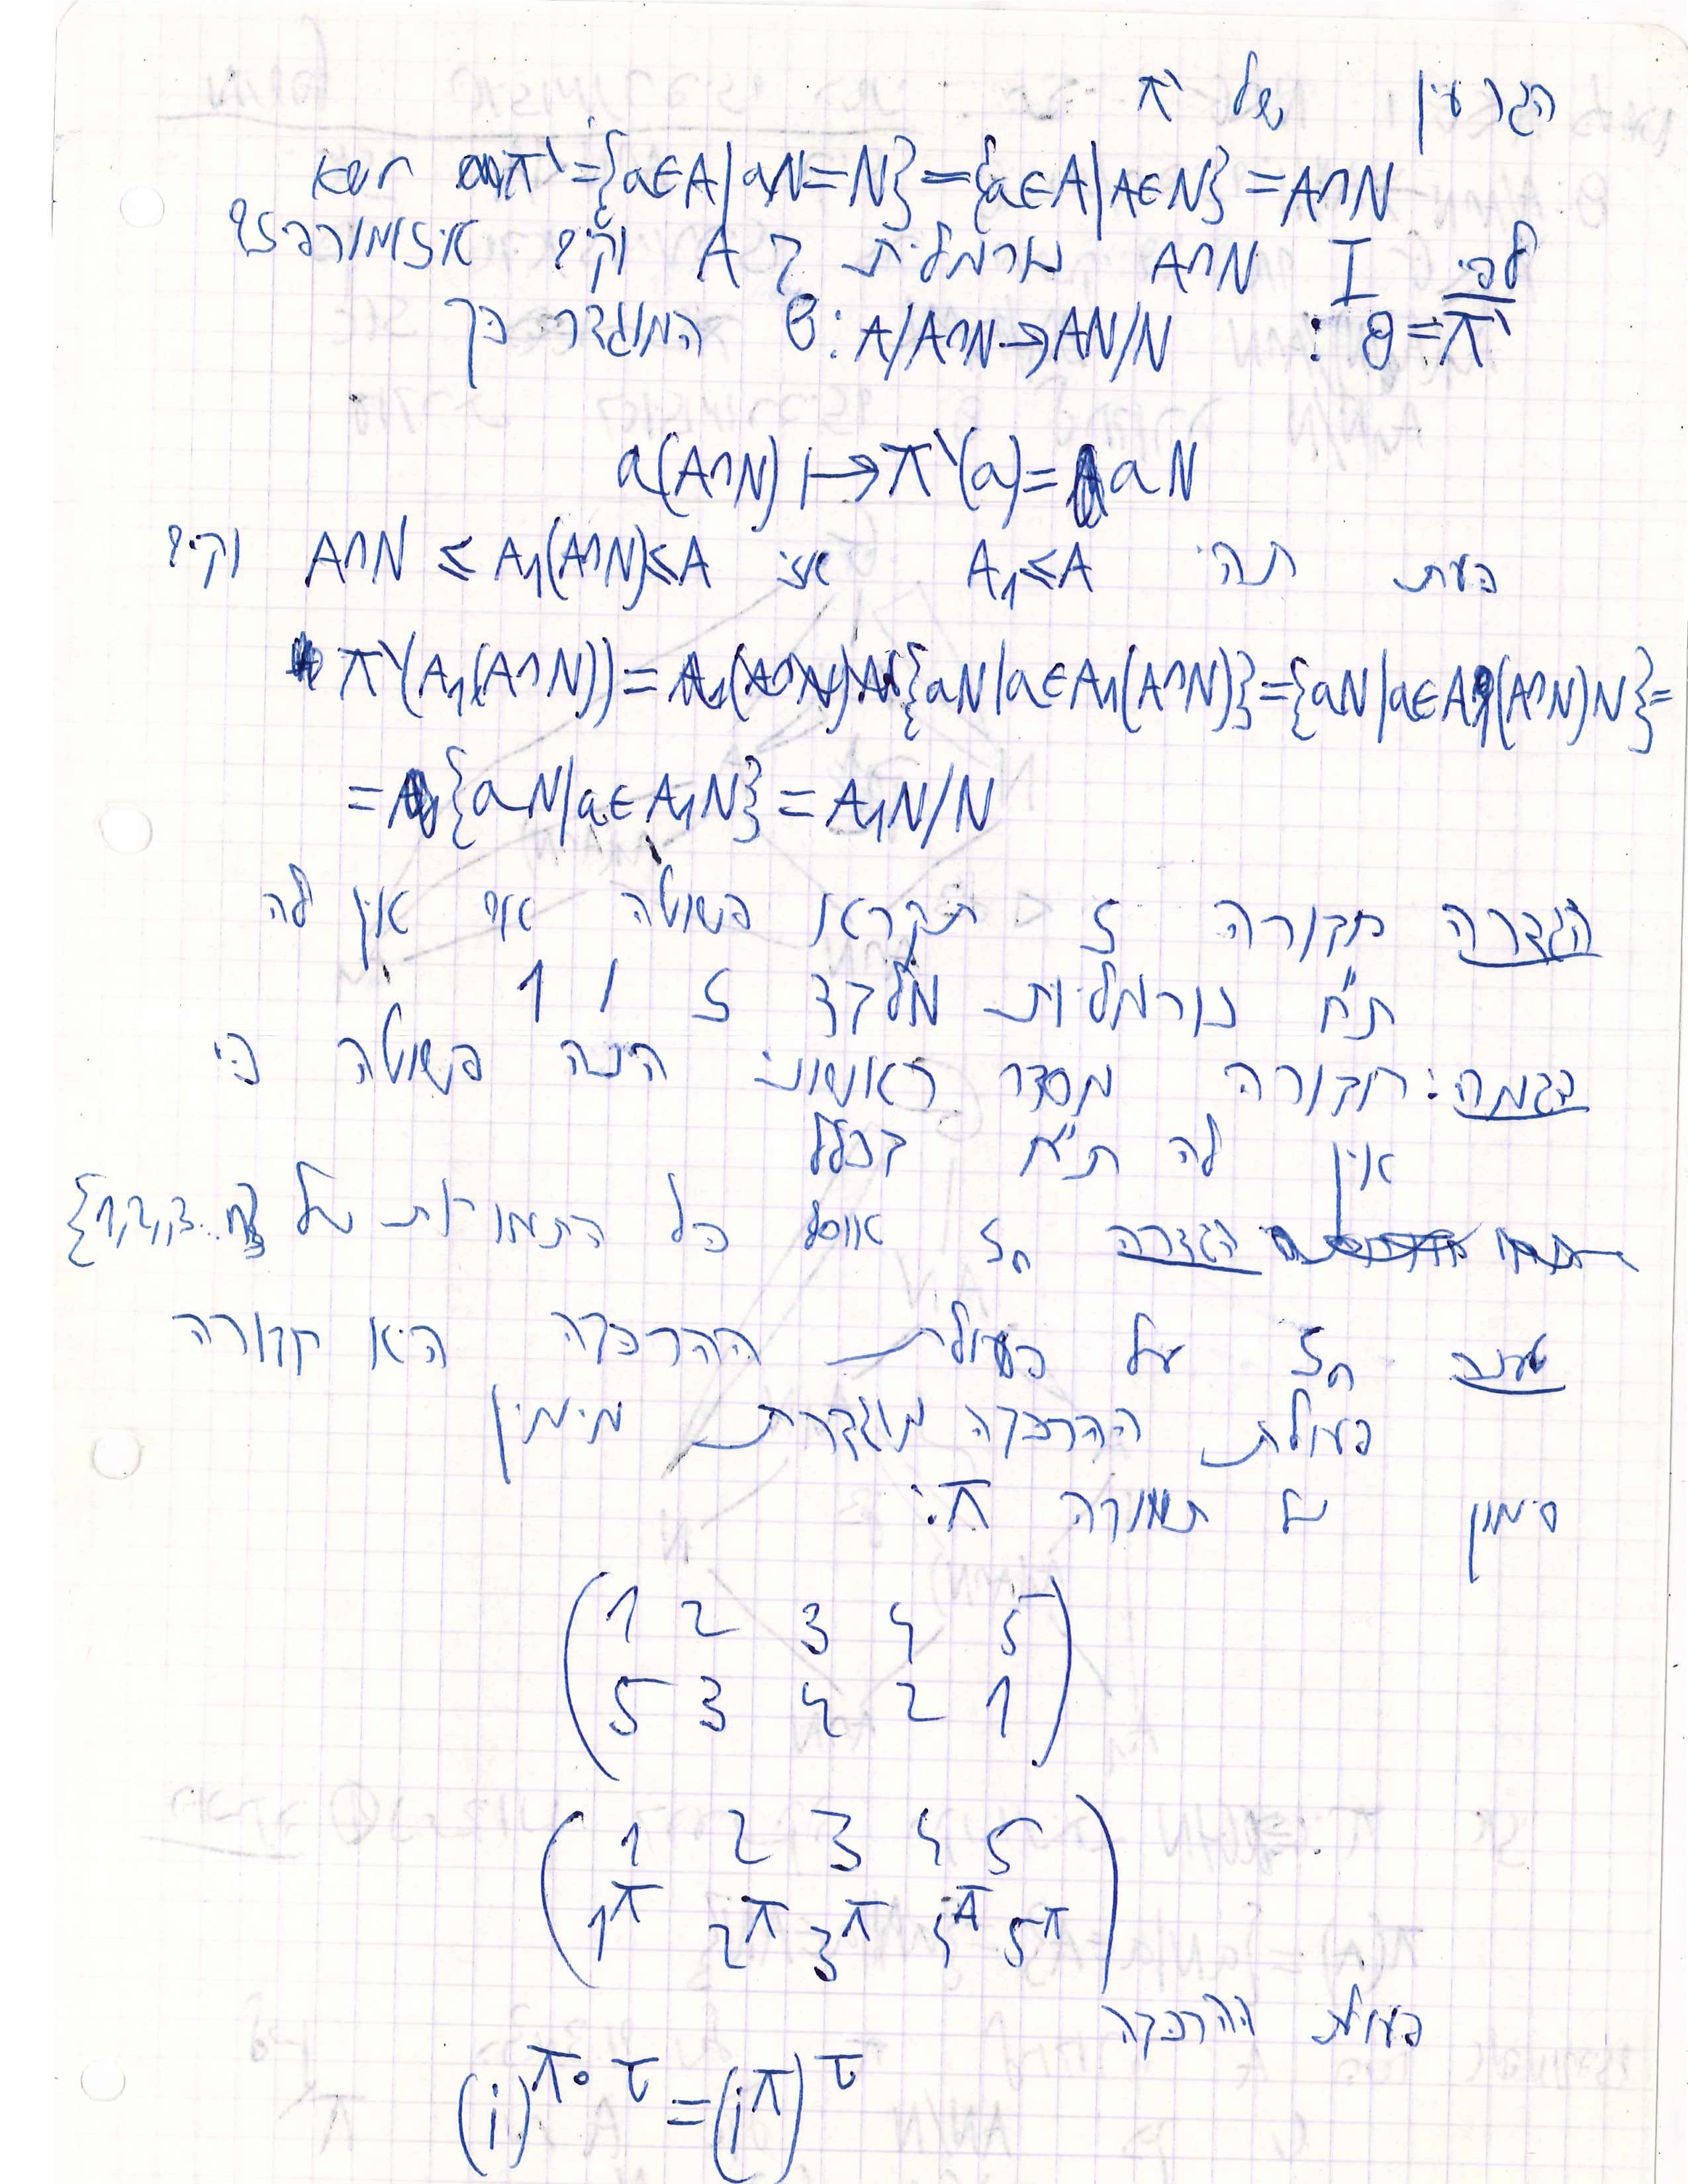 הגרעין של π'
ker π' = {a∈A | aN=N} = {a∈A | A∈N} = A∩N
לפי I A∩N נורמלית ב A וקיי אזומורפיזם
θ = π̄' : θ: A/A∩N → AN/N המוגדר כך
a(A∩N) ↦ π'(a) = aN
כעת תהי A₁≤A אזי A∩N ≤ A₁(A∩N) ≤ A וקיים
π'(A₁(A∩N)) = {aN | a∈A₁(A∩N)} = {aN | a∈A₁(A∩N)N} =
= {aN | a∈A₁N} = A₁N/N
הגדרה חבורה S תקרא פשוטה אם אין לה
ת"ח נורמליות מלבד S ו 1
דוגמה: חבורה מסדר ראשוני הינה פשוטה כי
אין לה ת"ח בכלל
הגדרה Sₙ אוסף כל התמורות של {1,2,3...n}
טענה Sₙ על פעולת ההרכבה היא חבורה
פעולת ההרכבה מוגדרת מימין
סימון של תמורה π:
( 1 2 3 4 5 )
( 5 3 4 2 1 )
( 1 2 3 4 5 )
( 1^π 2^π 3^π 4^π 5^π )
פעולת ההרכבה
(i)^{π∘τ} = (i^π)^τ